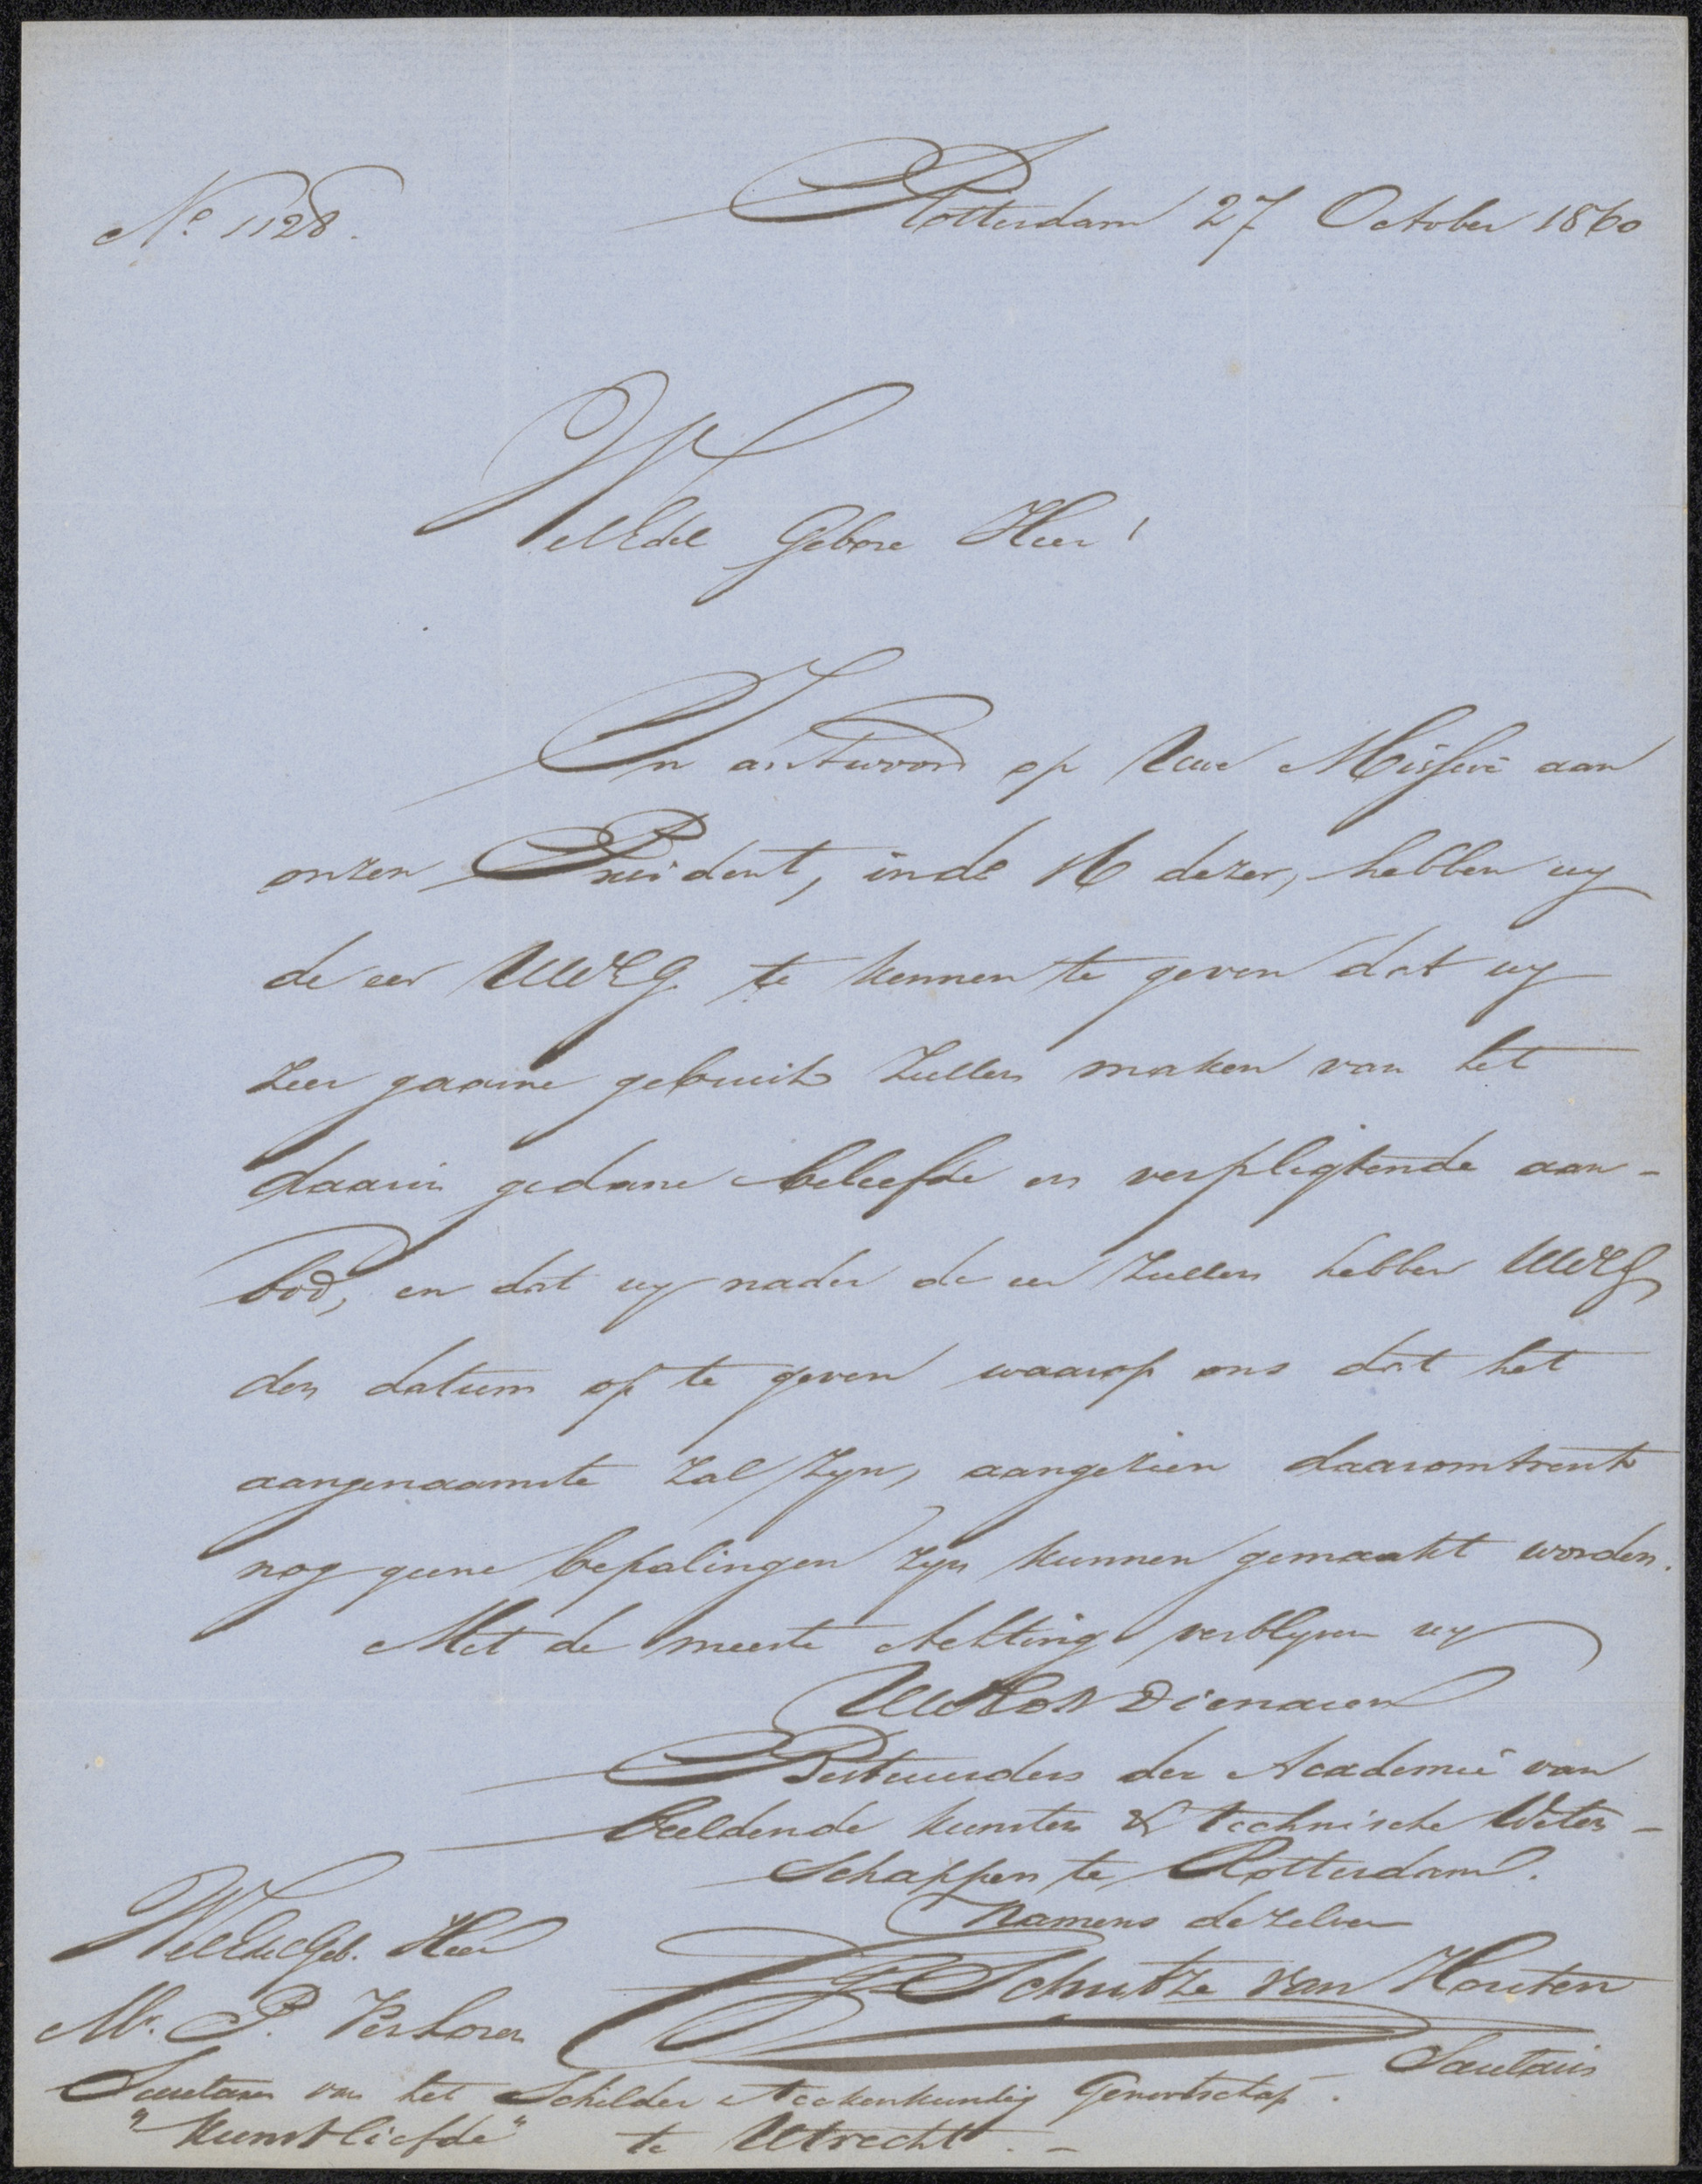 No 1128.
Rotterdam 27 October 1860
WelEdel Gebore Heer!
In antwoord op Uwe Missive aan
onzen President, in de 16 dezer, hebben wy
de eer UWEG te kennen te geven dat wy
zeer gaarne gebruik zullen maken van het
daarin gedane beleefde en verpligtende aan-
bod, en dat wy nader de eer zullen hebben UWEG
den datum op te geven waarop ons dat het
aangenaamste zal zyn, aangezien daaromtrent
nog geene bepalingen zyn kunnen gemaakt worden.
Met de meeste Achting verblyven wy
Dienaren
Bestuurders der Academie van
beeldende kunsten & technische Weten-
schappen te Rotterdam.
Namens dezelven
Schutze van Houten
Secretaris
WelEdelGeb. Heer
Mr. P. VerLoren
Secretaris van het Schilder Teekenkundig Genootschap.
"Kunstliefde" te Utrecht.-